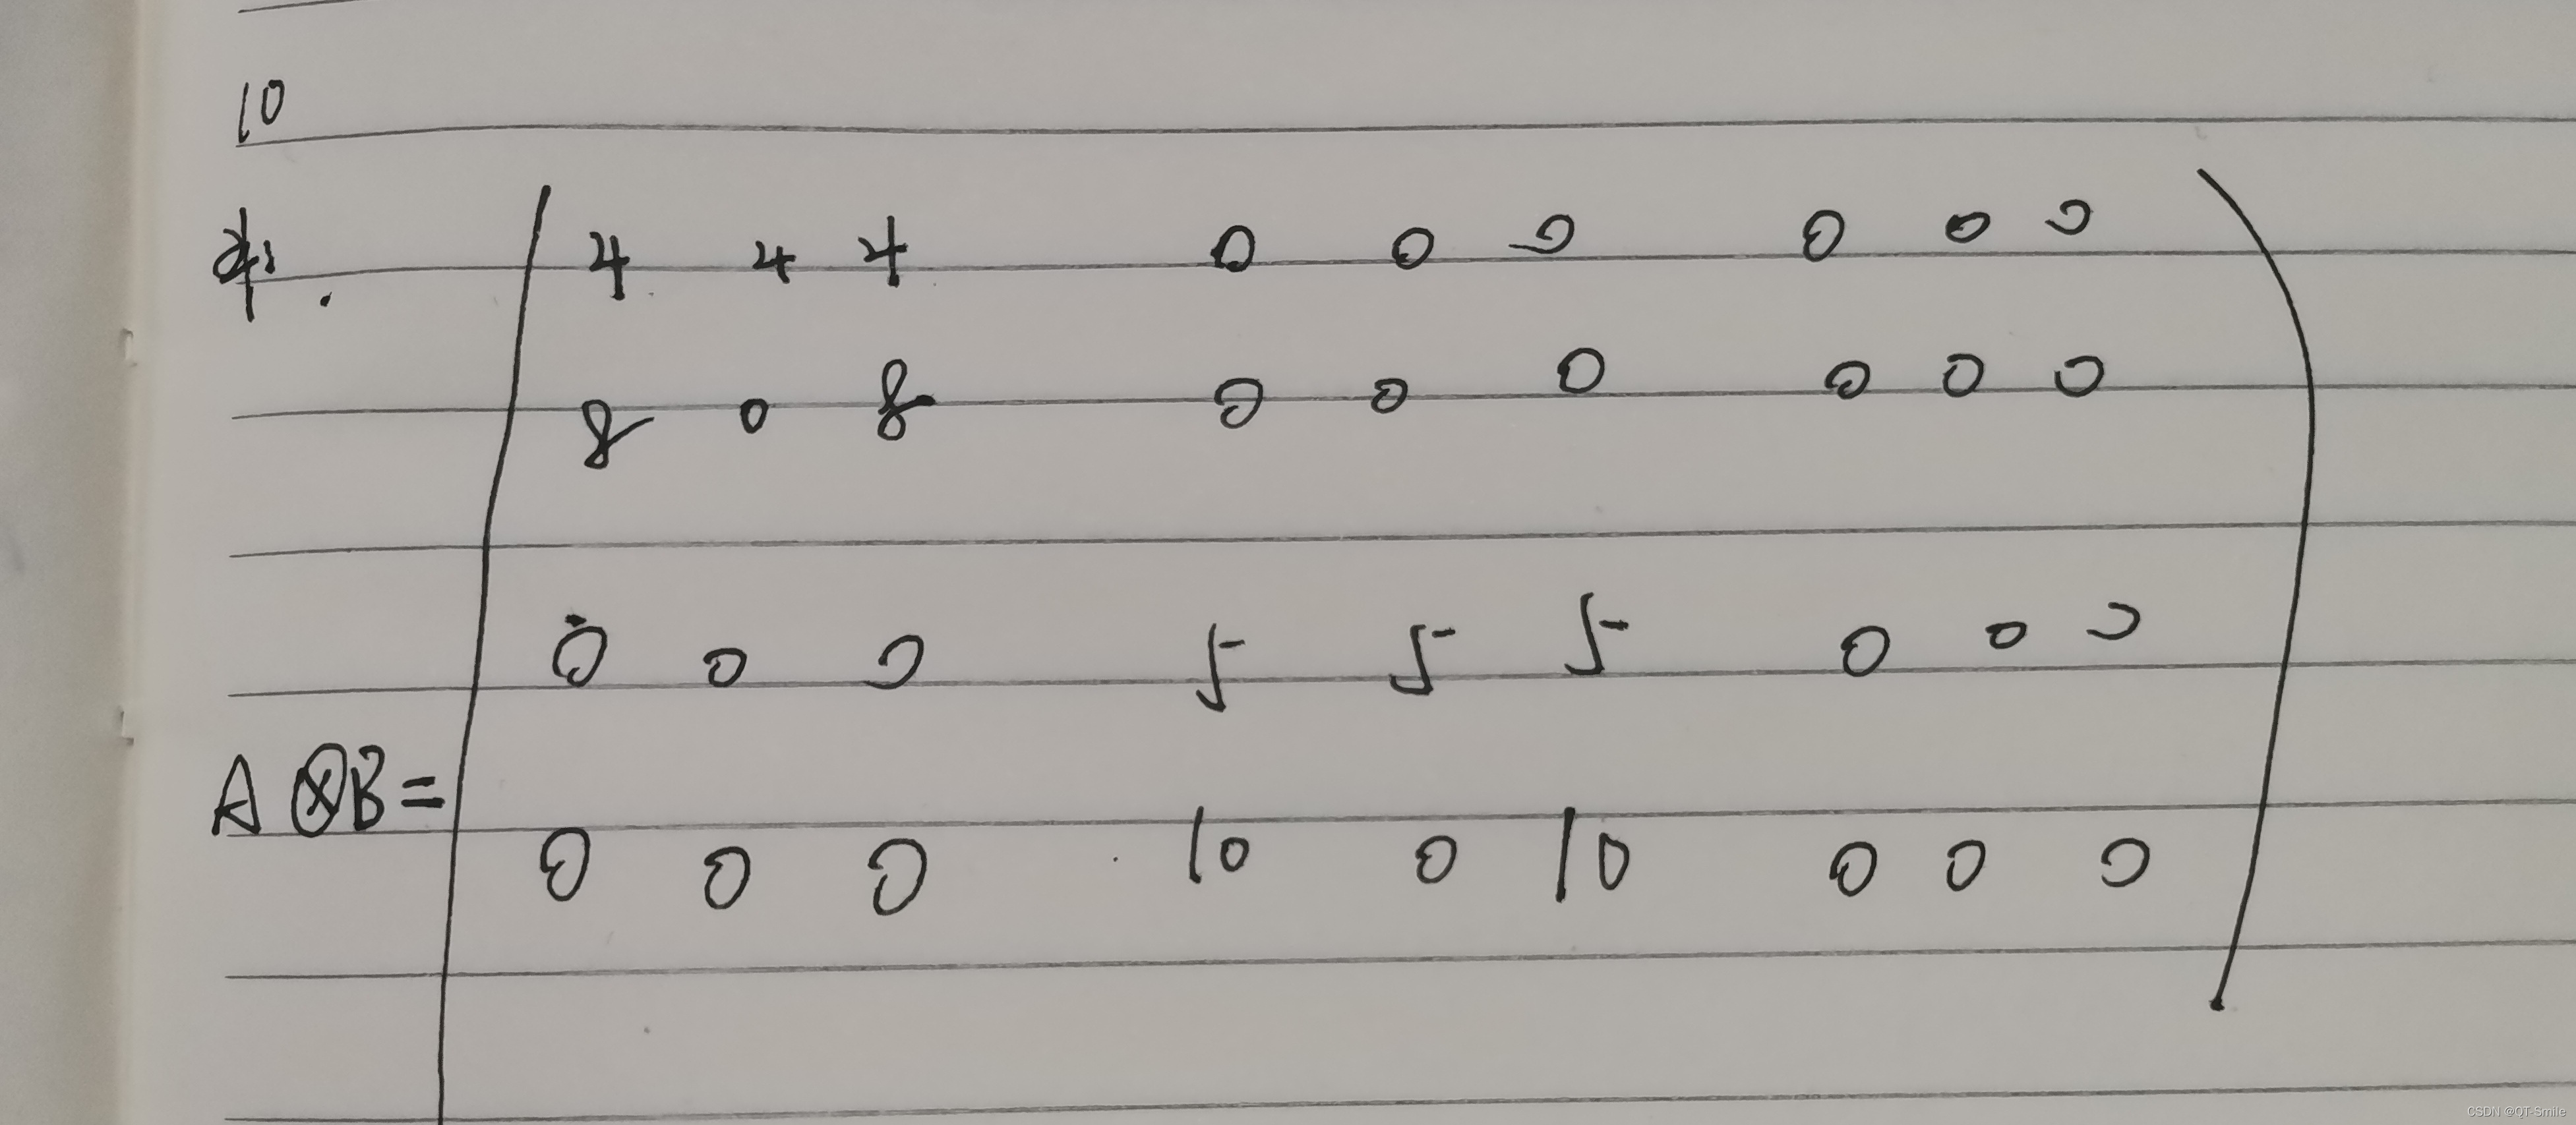 10
4 4 4 0 0 0 0 0 0
8 0 8 0 0 0 0 0 0
0 0 0 5 5 5 0 0 0
A⊗B=
0 0 0 10 0 10 0 0 0
CSDN @QT-Smile